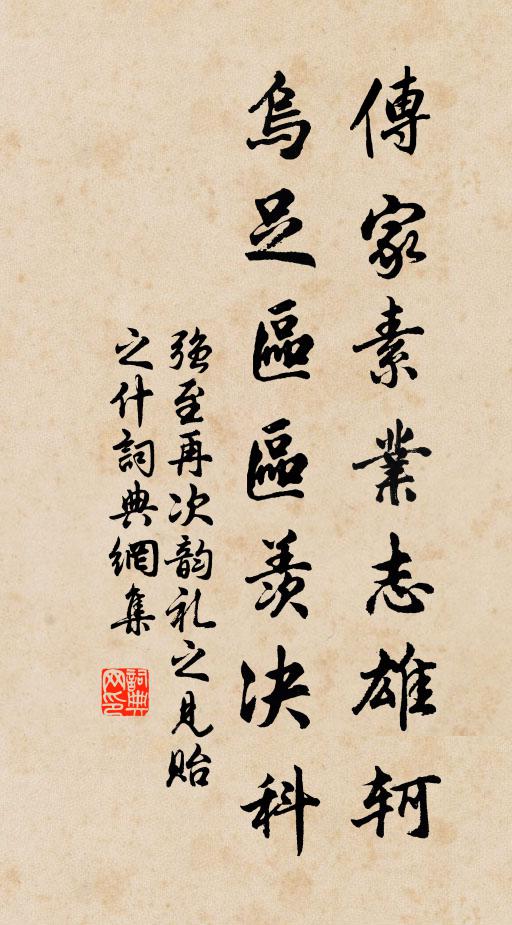 傳家素業志雄軻
烏足區區羨決科
強至再次韵礼之見貽
之什詞典網集
詞典网印